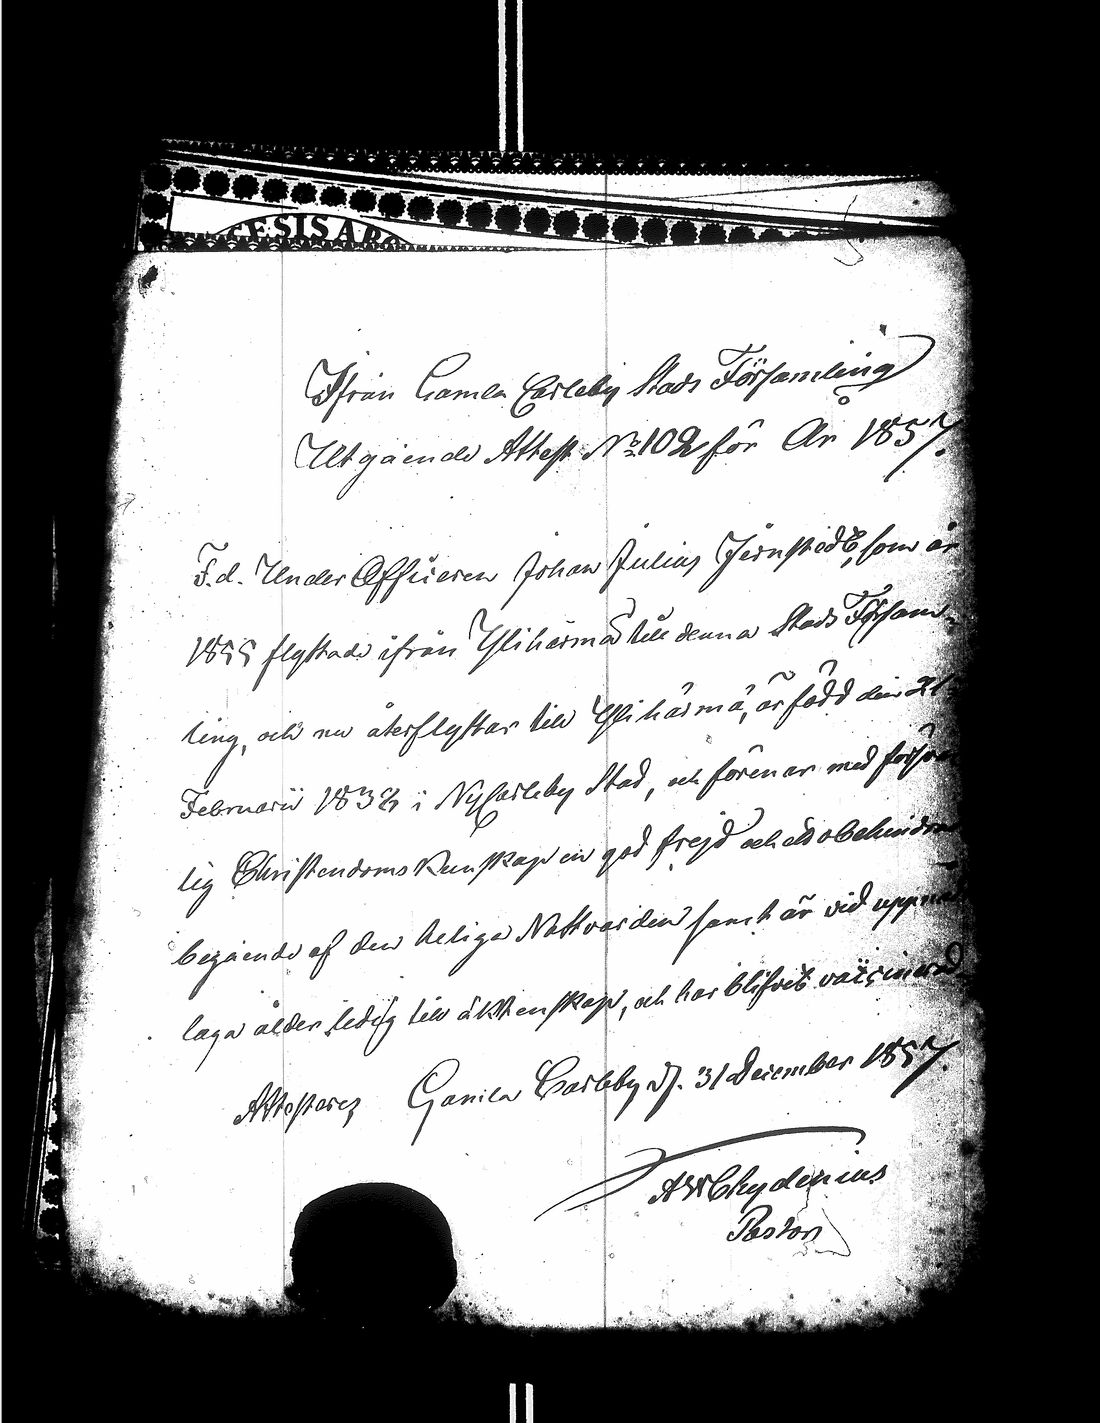 ESIS AR
Ifrån Gamla Carleby Stads Församling
Utgående Attest No 102 för År 1857.
F.d. Under Officeren Johan Julius Jernstedt, som år
1855 flyttade ifrån Ylihärmä till denna Stads Försam-
ling, och nu återflyttar till Ylihärmä, är född den
Februarii i NyCarleby Stad, och förenar med
lig Christendoms Kunskap en god frejd och
begående af den heliga Nattvarden samt är vid
laga ålder ledig till äktenskap, och har blifvit vaccinerad
Attesterar Gamla Carleby d. 31 December 1857.
AW Chydenius
Pastor